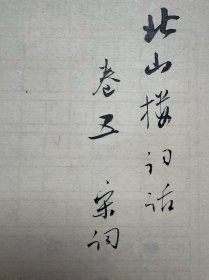 北山楼词话
卷五 宋词